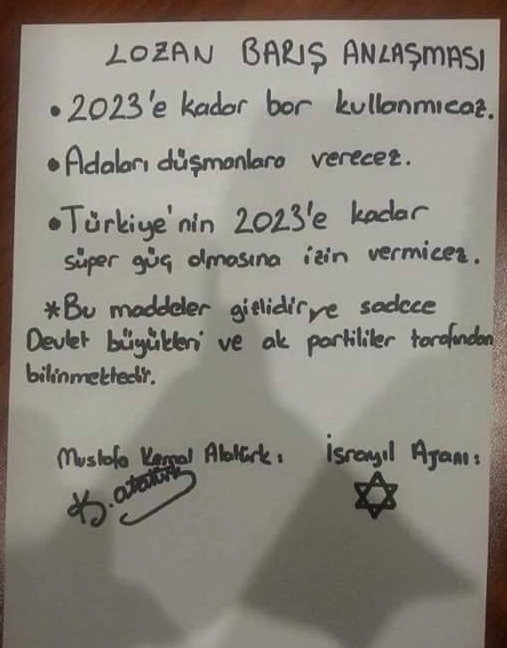 LOZAN BARIŞ ANLAŞMASI
• 2023'e kadar bor kullanmıcaz.
• Adaları düşmanlara verecez.
• Türkiye'nin 2023'e kadar
süper güç olmasına izin vermicez.
*Bu maddeler gizlidir ve sadece
Devlet büyükleri ve ak partililer tarafından
bilinmektedir.
Mustafa Kemal Atatürk: İsrayıl Ajanı:
K. atatürk